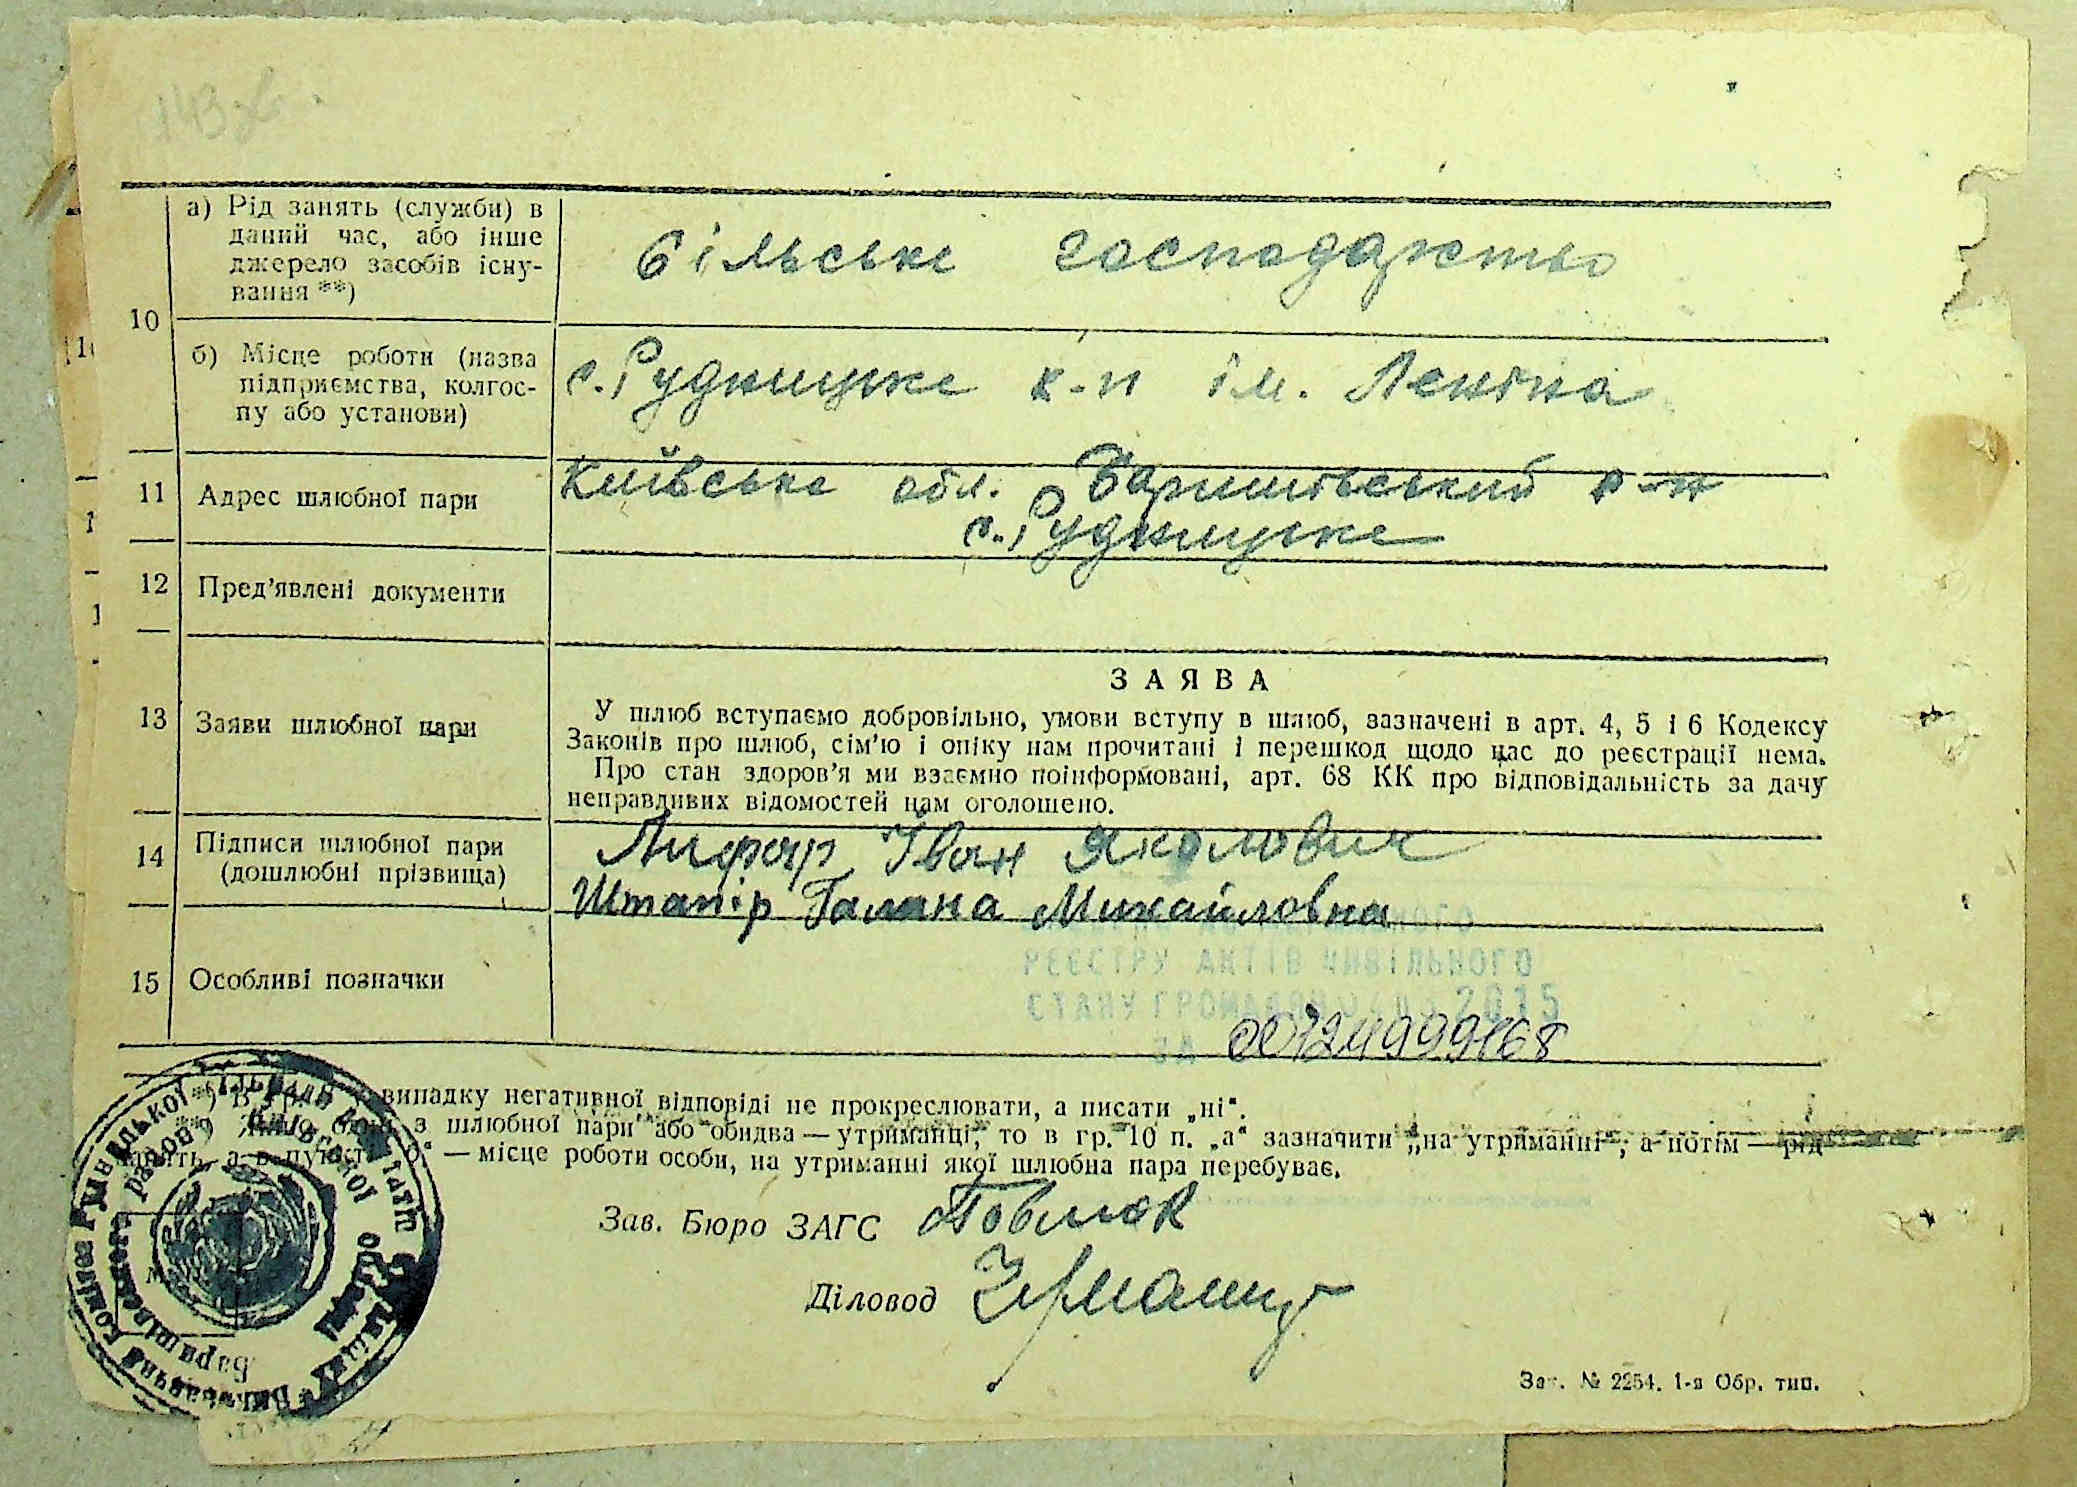 143 зв.
10
а) Рід занять (служби) в
даний час, або інше
джерело засобів існу-
вання **)
Сільське господарство
б) Місце роботи (назва
підприємства, колгос-
пу або установи)
с. Рудницьке к-п ім. Леніна
11
Адрес шлюбної пари
Київська обл. Баришівський р-н
с. Рудницьке
12
Пред’явлені документи
13
Заяви шлюбної пари
ЗАЯВА
У шлюб вступаємо добровільно, умови вступу в шлюб, зазначені в арт. 4, 5 і 6 Кодексу
Законів про шлюб, сім’ю і опіку нам прочитані і перешкод щодо нас до реєстрації нема.
Про стан здоров’я ми взаємно поінформовані, арт. 68 КК про відповідальність за дачу
неправдивих відомостей нам оголошено.
14
Підписи шлюбної пари
(дошлюбні прізвища)
Лифар Іван Яколович
Штапір Галина Михайловна
15
Особливі позначки
РЕЄСТРУ АКТІВ ЦИВІЛЬНОГО
СТАНУ ГРОМАДЯН 2015
ЗА 00124999168
випадку негативної відповіді не прокреслювати, а писати „ні“.
з шлюбної пари або обидва — утриманці, то в гр. 10 п. „а“ зазначити „на утриманні“, а потім — рід
— місце роботи особи, на утриманні якої шлюбна пара перебуває.
Зав. Бюро ЗАГС
Діловод
Зак. № 2254. 1-я Обр. тип.